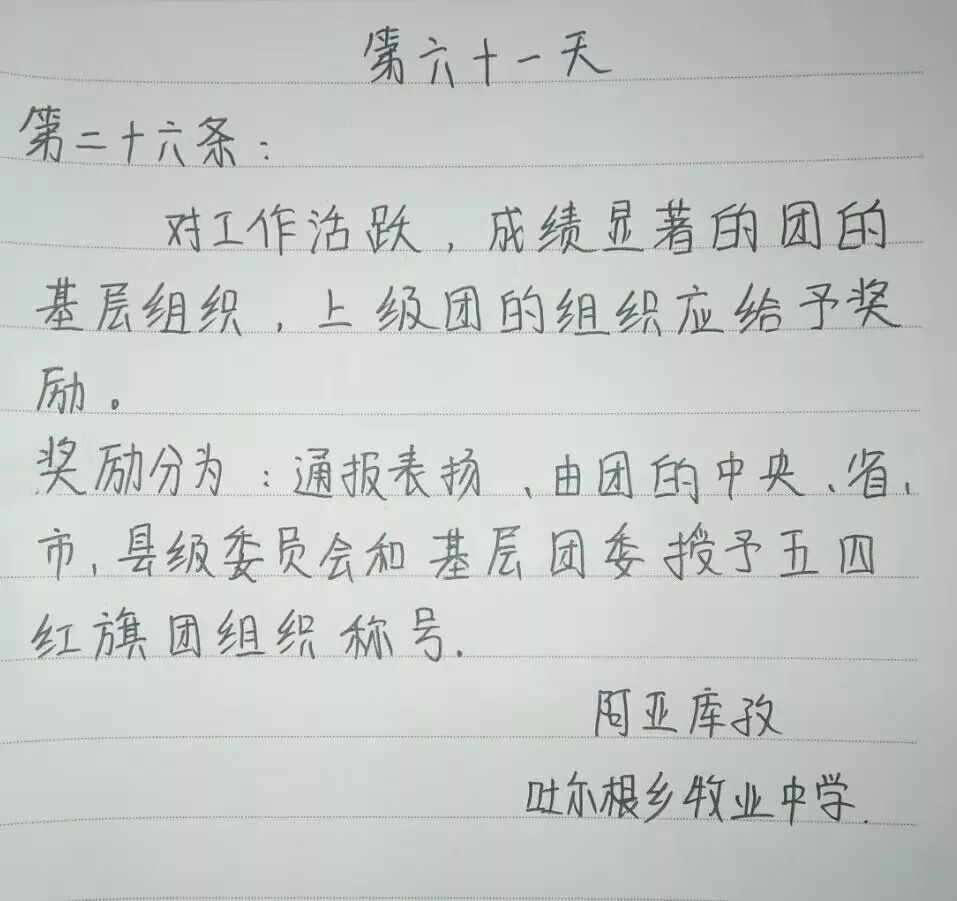 第六十一天
第二十六条：
对工作活跃，成绩显著的团的
基层组织，上级团的组织应给予奖
励。
奖励分为：通报表扬、由团的中央、省、
市、县级委员会和基层团委授予五四
红旗团组织称号.
阿亚库孜
吐尔根乡牧业中学.